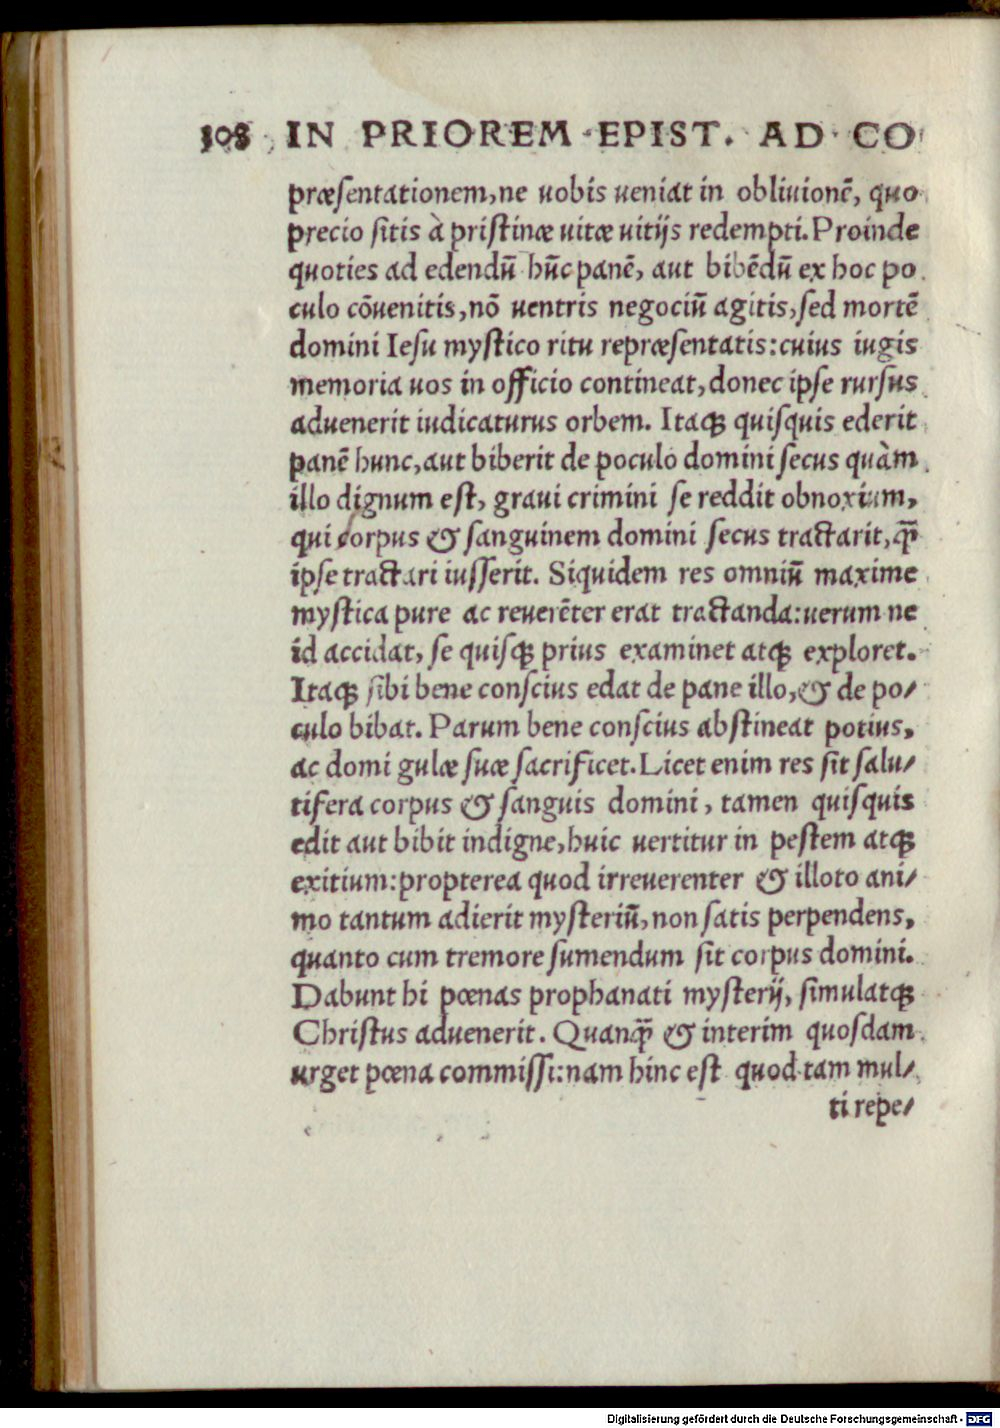 308 IN PRIOREM EPIST. AD CO
præsentationem, ne uobis ueniat in obliuionē, quo
precio sitis à pristinæ uitæ uitijs redempti. Proinde
quoties ad edendū hūc panē, aut bibēdū ex hoc po
culo cōuenitis, nō uentris negociū agitis, sed mortē
domini Iesu mystico ritu repræsentatis: cuius iugis
memoria uos in officio contineat, donec ipse rursus
aduenerit iudicaturus orbem. Itaqꝫ quisquis ederit
panē hunc, aut biberit de poculo domini secus quàm
illo dignum est, graui crimini se reddit obnoxium,
qui corpus & sanguinem domini secus tractarit, qᷓ
ipse tractari iusserit. Siquidem res omniū maxime
mystica pure ac reuerēter erat tractanda: uerum ne
id accidat, se quisqꝫ prius examinet atqꝫ exploret.
Itaqꝫ sibi bene conscius edat de pane illo, & de po/
culo bibat. Parum bene conscius abstineat potius,
ac domi gulæ suæ sacrificet. Licet enim res sit salu/
tifera corpus & sanguis domini, tamen quisquis
edit aut bibit indigne, huic uertitur in pestem atqꝫ
exitium: propterea quod irreuerenter & illoto ani/
mo tantum adierit mysteriū, non satis perpendens,
quanto cum tremore sumendum sit corpus domini.
Dabunt hi pœnas prophanati mysterij, simulatqꝫ
Christus aduenerit. Quanqᷓ & interim quosdam
urget pœna commissi: nam hinc est quod tam mul/
ti repe/
Digitalisierung gefördert durch die Deutsche Forschungsgemeinschaft - DFG